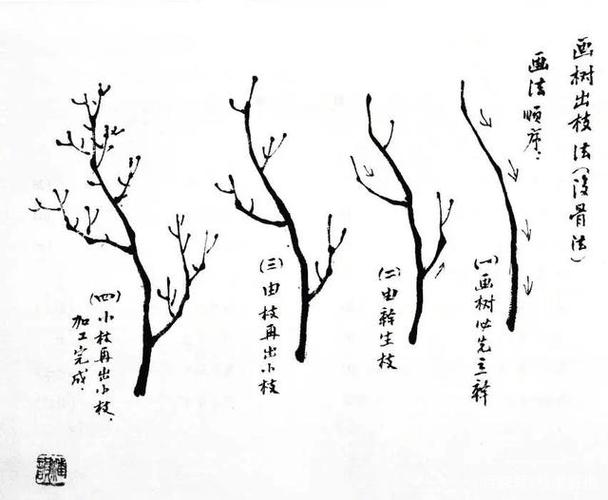 画树出枝法(没骨法)
画法顺序：
(一)画树必先立幹
(二)由幹生枝
(三)由枝再出小枝
(四)小枝再出小枝、
加工完成.